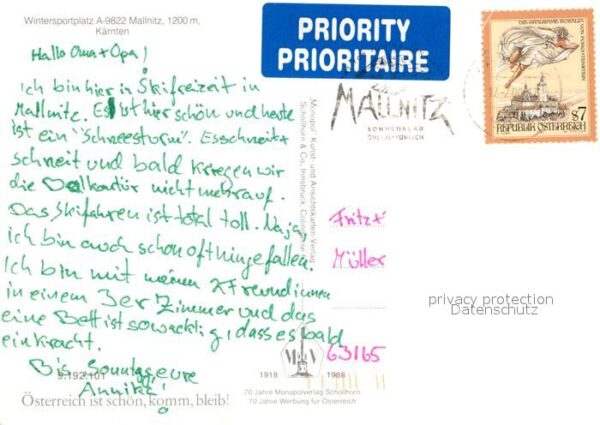 Wintersportplatz A-9822 Mallnitz, 1200 m,
Kärnten
Hallo Oma + Opa!
Ich bin hier in Skifreizeit in
Mallnitz. Es ist hier schön und heute
ist ein "Schneesturm". Es schneit
schneit und bald kriegen wir
die Balkontür nicht mehr auf.
Das Skifahren ist total toll. Naja,
ich bin auch schon oft hingefallen.
Ich bin mit meinen 2 Freundinnen
in einem 3er Zimmer und das
eine Bett ist so wackelig, dass es bald
einkracht.
Bis Sonntag eure
Annika!
9.192.101
Österreich ist schön, komm, bleib!
PRIORITY
PRIORITAIRE
MALLNITZ
Monopol Kunst- und Ansichtskarten-Verlag
Schöllhorn & Co., Innsbruck,
1918 1988
70 Jahre Monopolverlag Schöllhorn
70 Jahre Werbung für Österreich
S7
REPUBLIK ÖSTERREICH
Fritz +
Müller
63165
privacy protection
Datenschutz